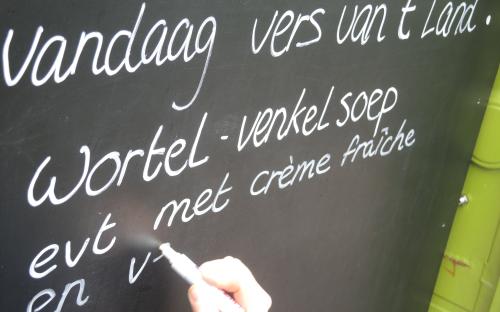 Vandaag vers van 't Land.
Wortel-venkel soep
evt met crème fraîche
en v